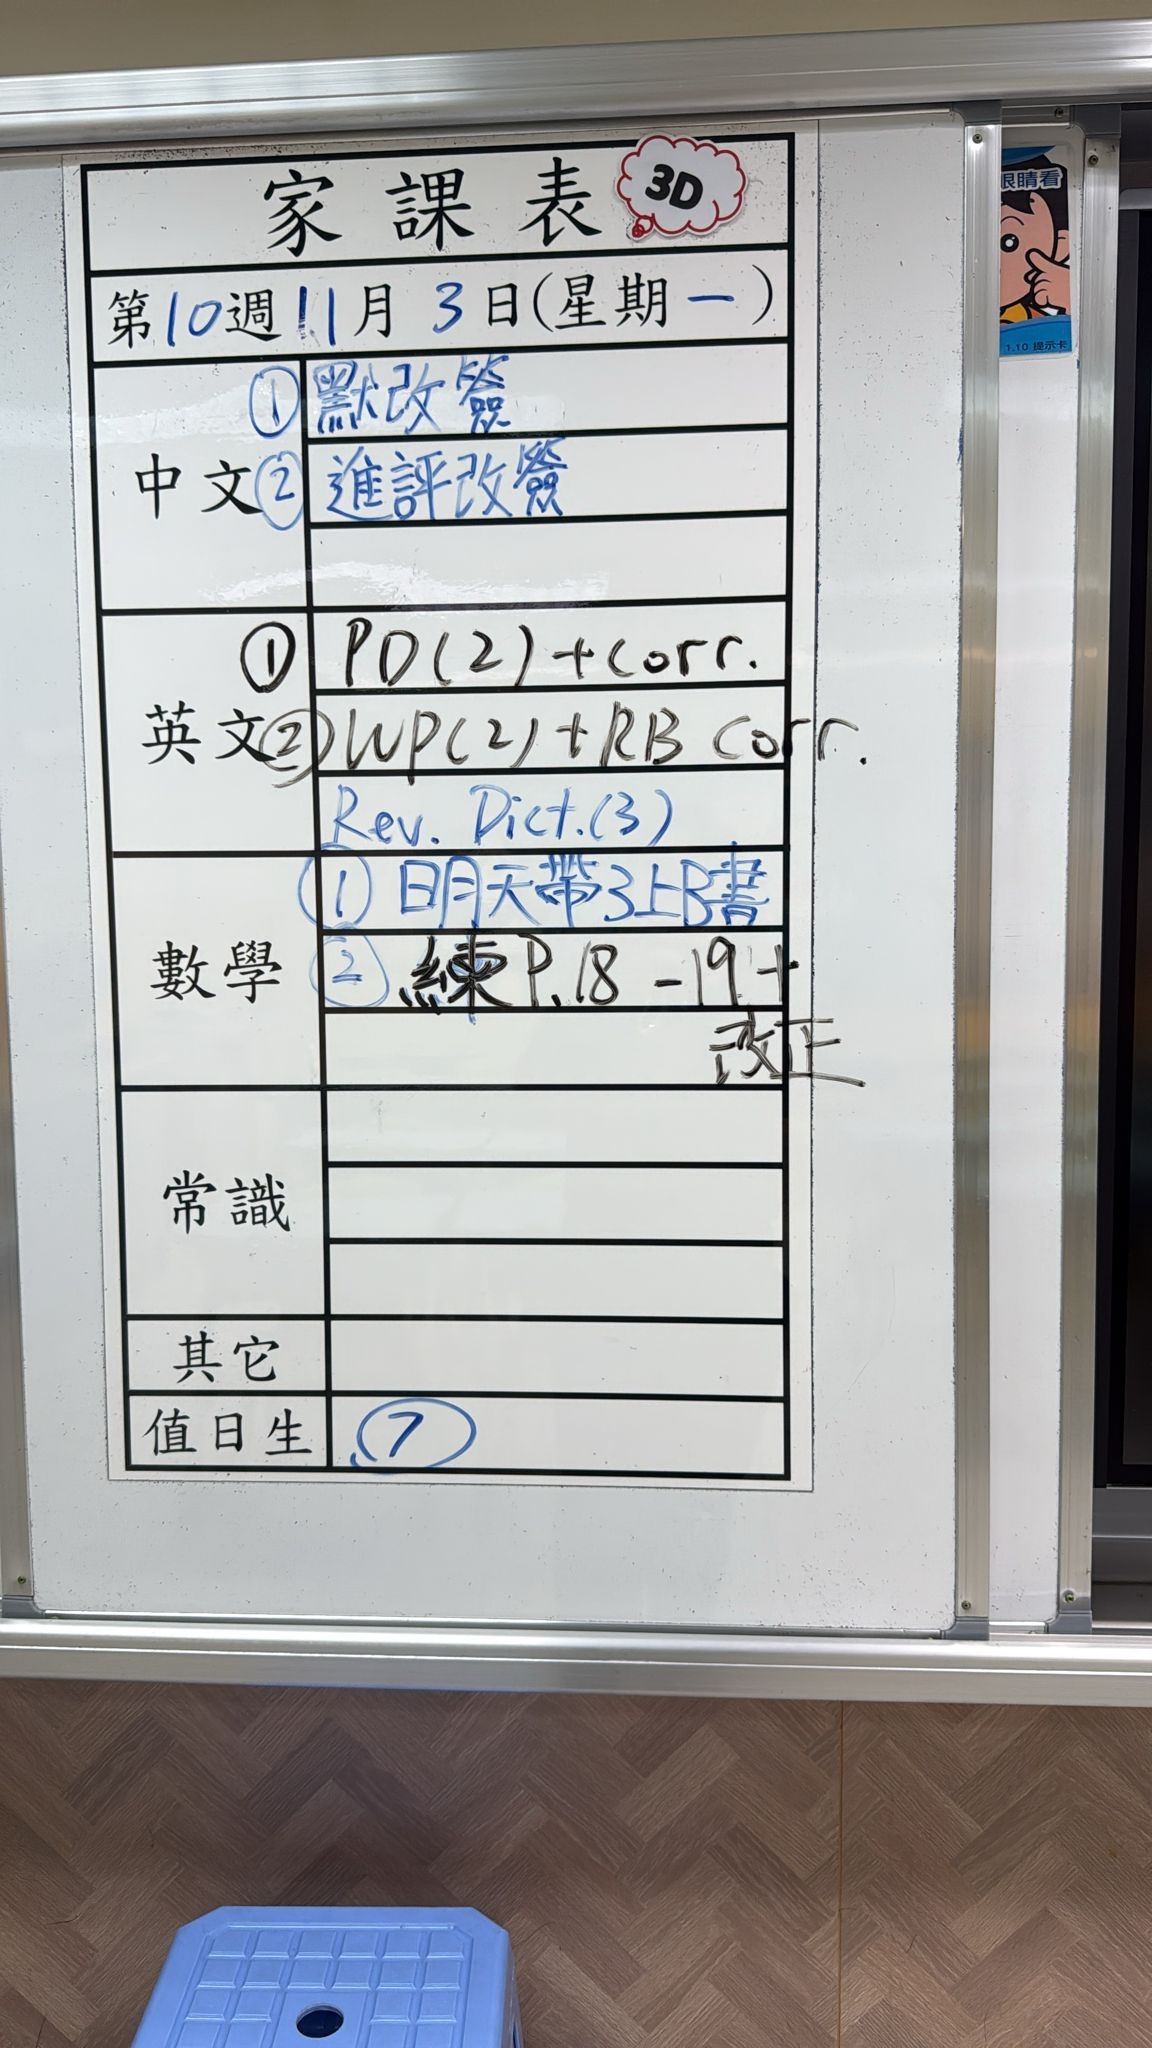 家課表 3D
第10週11月3日(星期一)
中文
① 默改簽
② 進評改簽
英文
① PD(2)+corr.
② WP(2)+RB corr.
Rev. Dict.(3)
數學
① 明天帶3上B書
② 練P.18-19+
改正
常識
其它
值日生 7
眼睛看
1.10 提示卡